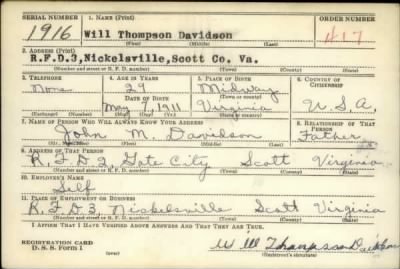 SERIAL NUMBER 1. NAME (Print) ORDER NUMBER
1916 Will Thompson Davidson 417
(First) (Middle) (Last)
2. ADDRESS (Print)
R.F.D.3, Nickelsville, Scott Co. Va.
(Number and street or R. F. D. number) (Town) (County) (State)
3. TELEPHONE 4. AGE IN YEARS 5. PLACE OF BIRTH 6. COUNTRY OF CITIZENSHIP
None 29 Midway
DATE OF BIRTH (Town or county)
May 7, 1911 Virginia U.S.A.
(Exchange) (Number) (Mo.) (Day) (Yr.) (State or country)
7. NAME OF PERSON WHO WILL ALWAYS KNOW YOUR ADDRESS 8. RELATIONSHIP OF THAT PERSON
John M. Davidson Father
(Mr., Mrs., Miss) (First) (Middle) (Last)
9. ADDRESS OF THAT PERSON
R.F.D 2, Gate City Scott Virginia
(Number and street or R. F. D. number) (Town) (County) (State)
10. EMPLOYER'S NAME
Self
11. PLACE OF EMPLOYMENT OR BUSINESS
R.F.D 3, Nickelsville Scott Virginia
(Number and street or R. F. D. number) (Town) (County) (State)
I AFFIRM THAT I HAVE VERIFIED ABOVE ANSWERS AND THAT THEY ARE TRUE.
REGISTRATION CARD
D. S. S. FORM 1 Will Thompson Davidson
(over) (Registrant's signature)